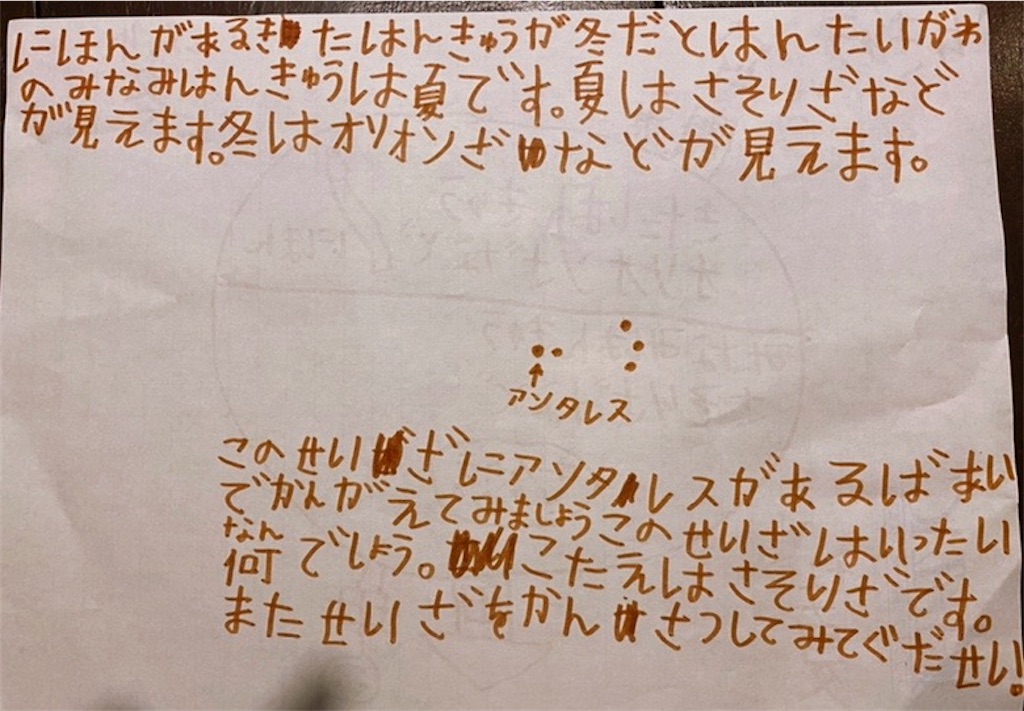 にほんがあるきたはんきゅうが冬だとはんたいがわ
のみなみはんきゅうは夏です。夏はさそりざなど
が見えます。冬はオリオンざなどが見えます。
アンタレス
このせいざにアンタレスがあるばあい
でかんがえてみましょうこのせいざはいったい
なん
何でしょう。こたえはさそりざです。
またせいざをかんさつしてみてぐだ
せい!